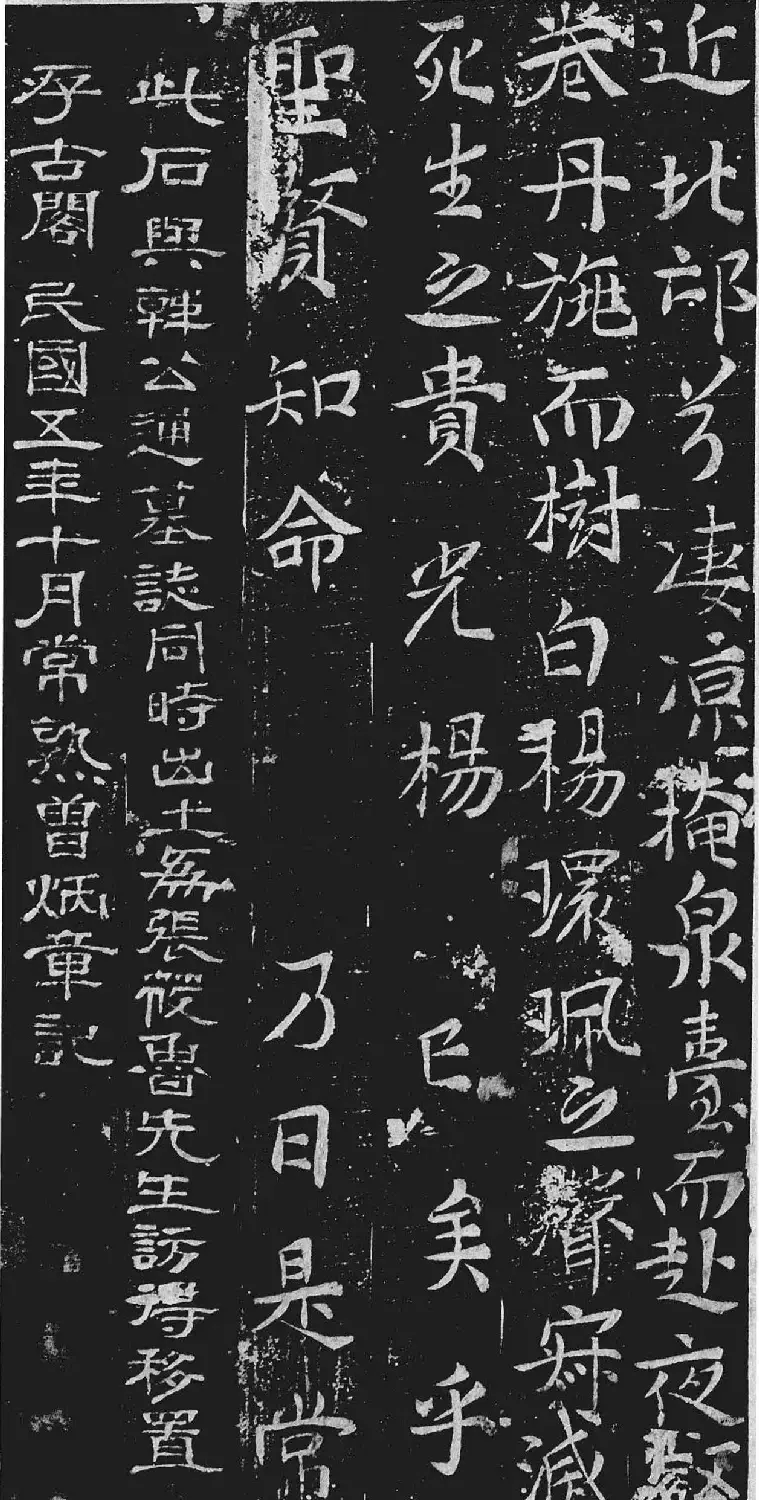 近北邙兮淒涼掩泉臺而赴夜壑
卷丹旐而樹白楊環珮之聲寂滅
死生之貴光楊已矣乎
聖賢知命乃日是常
此石與韓公通墓誌同時出土爲張筱魯先生訪得移置
存古閣民國五年十月常熟曾炳章記